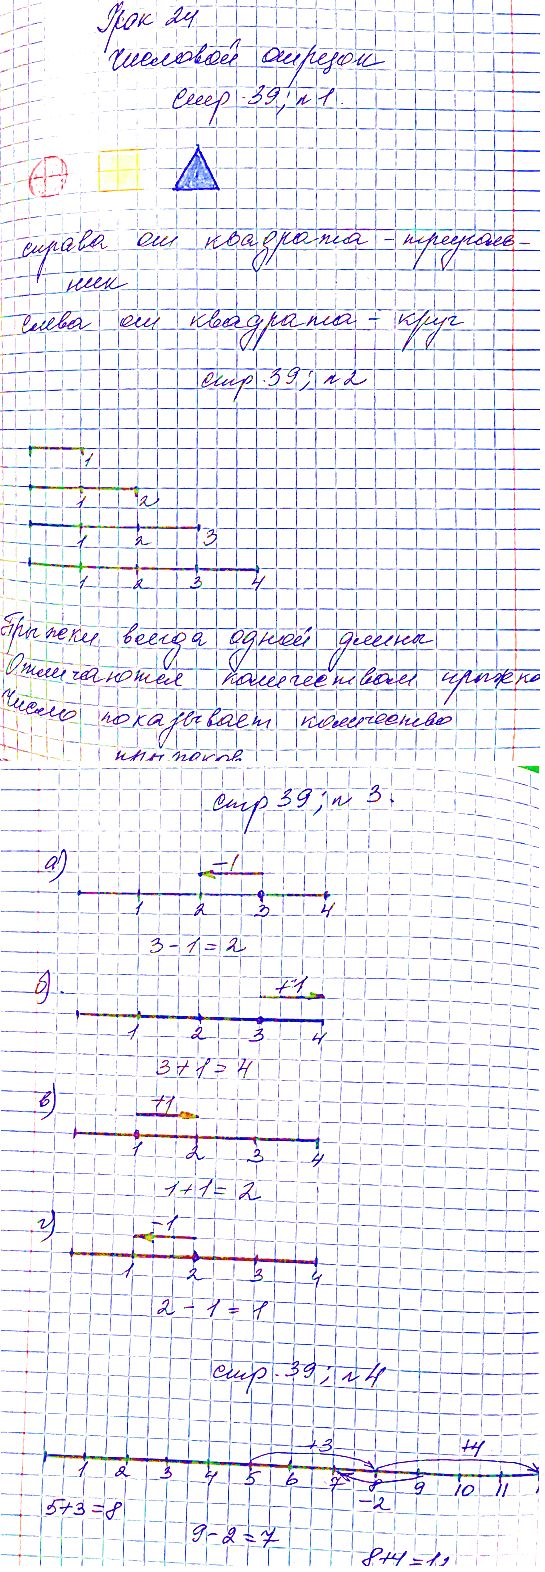 Урок 24
Числовой отрезок
стр. 39; n 1.
справа от квадрата - треуголь-
ник
слева от квадрата - круг
стр. 39; n 2
1
1 2
1 2 3
1 2 3 4
Прыжки всегда одной длины
Отличаются количеством прыжко
Число показывает количество
прыжков.
стр 39; n 3.
а)
-1
1 2 3 4
3 - 1 = 2
б)
+1
1 2 3 4
3 + 1 = 4
в)
+1
1 2 3 4
1 + 1 = 2
г)
-1
1 2 3 4
2 - 1 = 1
стр. 39; n 4
+3 +4
1 2 3 4 5 6 7 8 9 10 11
-2
5+3=8
9-2=7
8+4=1